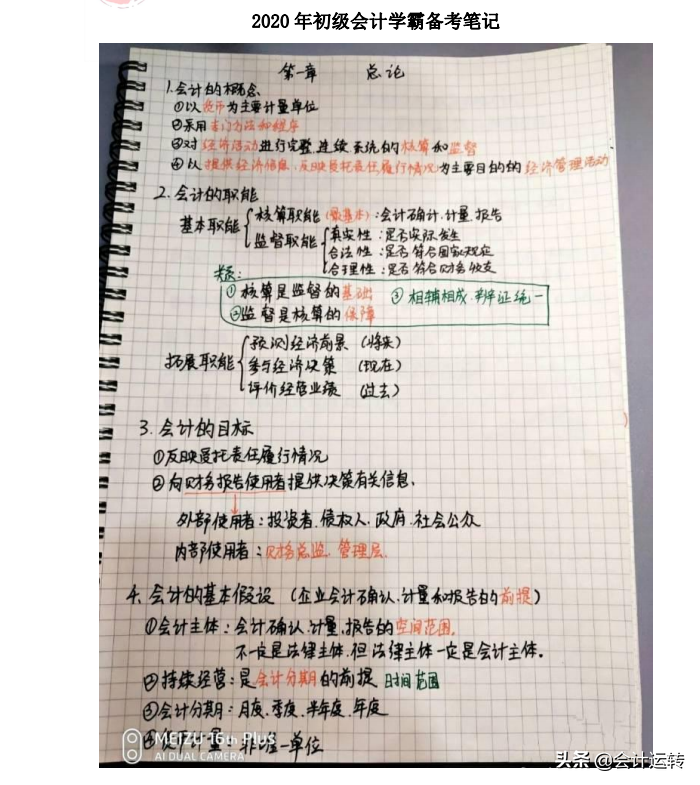 2020 年初级会计学霸备考笔记
第一章 总论
1.会计的概念
①以货币为主要计量单位
②采用专门方法和程序
③对经济活动进行完整.连续.系统的核算和监督
④以提供经济信息.反映受托责任履行情况为主要目的的经济管理活动
2.会计的职能
基本职能
核算职能(最基本):会计确计.计量.报告
监督职能
真实性:是否实际发生
合法性:是否符合国家规定
合理性:是否符合财务收支
关系:
①核算是监督的基础 ③相辅相成.辩证统一
②监督是核算的保障
拓展职能
预测经济前景 (将来)
参与经济决策 (现在)
评价经营业绩 (过去)
3.会计的目标
①反映受托责任履行情况
②向财务报告使用者提供决策有关信息.
外部使用者:投资者.债权人.政府.社会公众
内部使用者:财务总监.管理层.
4.会计的基本假设 (企业会计确认.计量和报告的前提)
①会计主体:会计确认.计量.报告的空间范围.
不一定是法律主体.但法律主体一定是会计主体.
②持续经营:是会计分期的前提 时间范围
③会计分期:月度.季度.半年度.年度
④ 计量: 唯一单位
MEIZU 16th Plus
AI DUAL CAMERA
头条 @会计运转